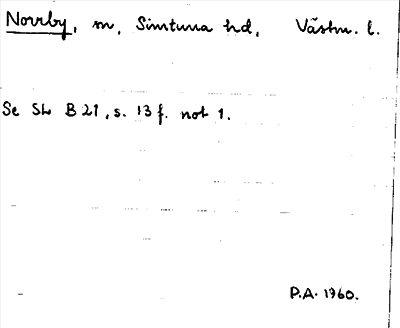 Norrby, m, Simtuna hd, Västm. l.
Se Sh B 21, s. 13 f. not 1.
P.A. 1960.